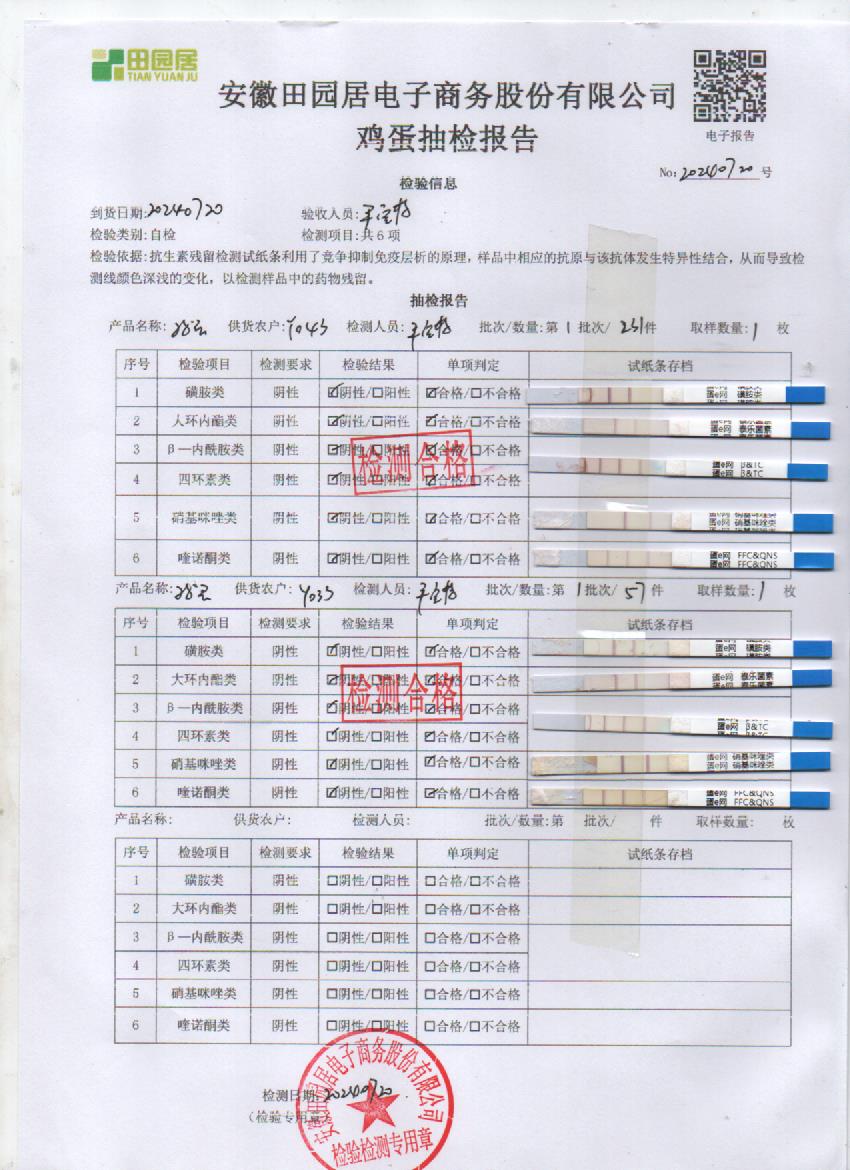 田园居
TIAN YUAN JU
安徽田园居电子商务股份有限公司
鸡蛋抽检报告
电子报告
No: 20240720 号
检验信息
到货日期:20240720 验收人员:
检验类别:自检 检测项目:共6项
检验依据:抗生素残留检测试纸条利用了竞争抑制免疫层析的原理,样品中相应的抗原与该抗体发生特异性结合,从而导致检
测线颜色深浅的变化,以检测样品中的药物残留。
抽检报告
产品名称: 供货农户:Y043 检测人员: 批次/数量:第1批次/231件 取样数量:1 枚
序号 检验项目 检测要求 检验结果 单项判定 试纸条存档
1 磺胺类 阴性 ☑阴性/☐阳性 ☑合格/☐不合格 蛋e网 磺胺类
2 大环内酯类 阴性 ☑阴性/☐阳性 ☑合格/☐不合格 蛋e网 泰乐菌素
3 β—内酰胺类 阴性 ☑阴性/☐阳性 ☑合格/☐不合格 蛋e网 β&TC
4 四环素类 阴性 ☑阴性/☐阳性 ☑合格/☐不合格
5 硝基咪唑类 阴性 ☑阴性/☐阳性 ☑合格/☐不合格 蛋e网 硝基咪唑类
6 喹诺酮类 阴性 ☑阴性/☐阳性 ☑合格/☐不合格 蛋e网 FFC&QNS
检测合格
产品名称: 供货农户:Y033 检测人员: 批次/数量:第1批次/57件 取样数量:1 枚
序号 检验项目 检测要求 检验结果 单项判定 试纸条存档
1 磺胺类 阴性 ☑阴性/☐阳性 ☑合格/☐不合格 蛋e网 磺胺类
2 大环内酯类 阴性 ☑阴性/☐阳性 ☑合格/☐不合格 蛋e网 泰乐菌素
3 β—内酰胺类 阴性 ☑阴性/☐阳性 ☑合格/☐不合格 蛋e网 β&TC
4 四环素类 阴性 ☑阴性/☐阳性 ☑合格/☐不合格
5 硝基咪唑类 阴性 ☑阴性/☐阳性 ☑合格/☐不合格 蛋e网 硝基咪唑类
6 喹诺酮类 阴性 ☑阴性/☐阳性 ☑合格/☐不合格 蛋e网 FFC&QNS
检测合格
产品名称: 供货农户: 检测人员: 批次/数量:第 批次/ 件 取样数量: 枚
序号 检验项目 检测要求 检验结果 单项判定 试纸条存档
1 磺胺类 阴性 ☐阴性/☐阳性 ☐合格/☐不合格
2 大环内酯类 阴性 ☐阴性/☐阳性 ☐合格/☐不合格
3 β—内酰胺类 阴性 ☐阴性/☐阳性 ☐合格/☐不合格
4 四环素类 阴性 ☐阴性/☐阳性 ☐合格/☐不合格
5 硝基咪唑类 阴性 ☐阴性/☐阳性 ☐合格/☐不合格
6 喹诺酮类 阴性 ☐阴性/☐阳性 ☐合格/☐不合格
检测日期:20240720
(检验专用章)
安徽田园居电子商务股份有限公司
检验检测专用章